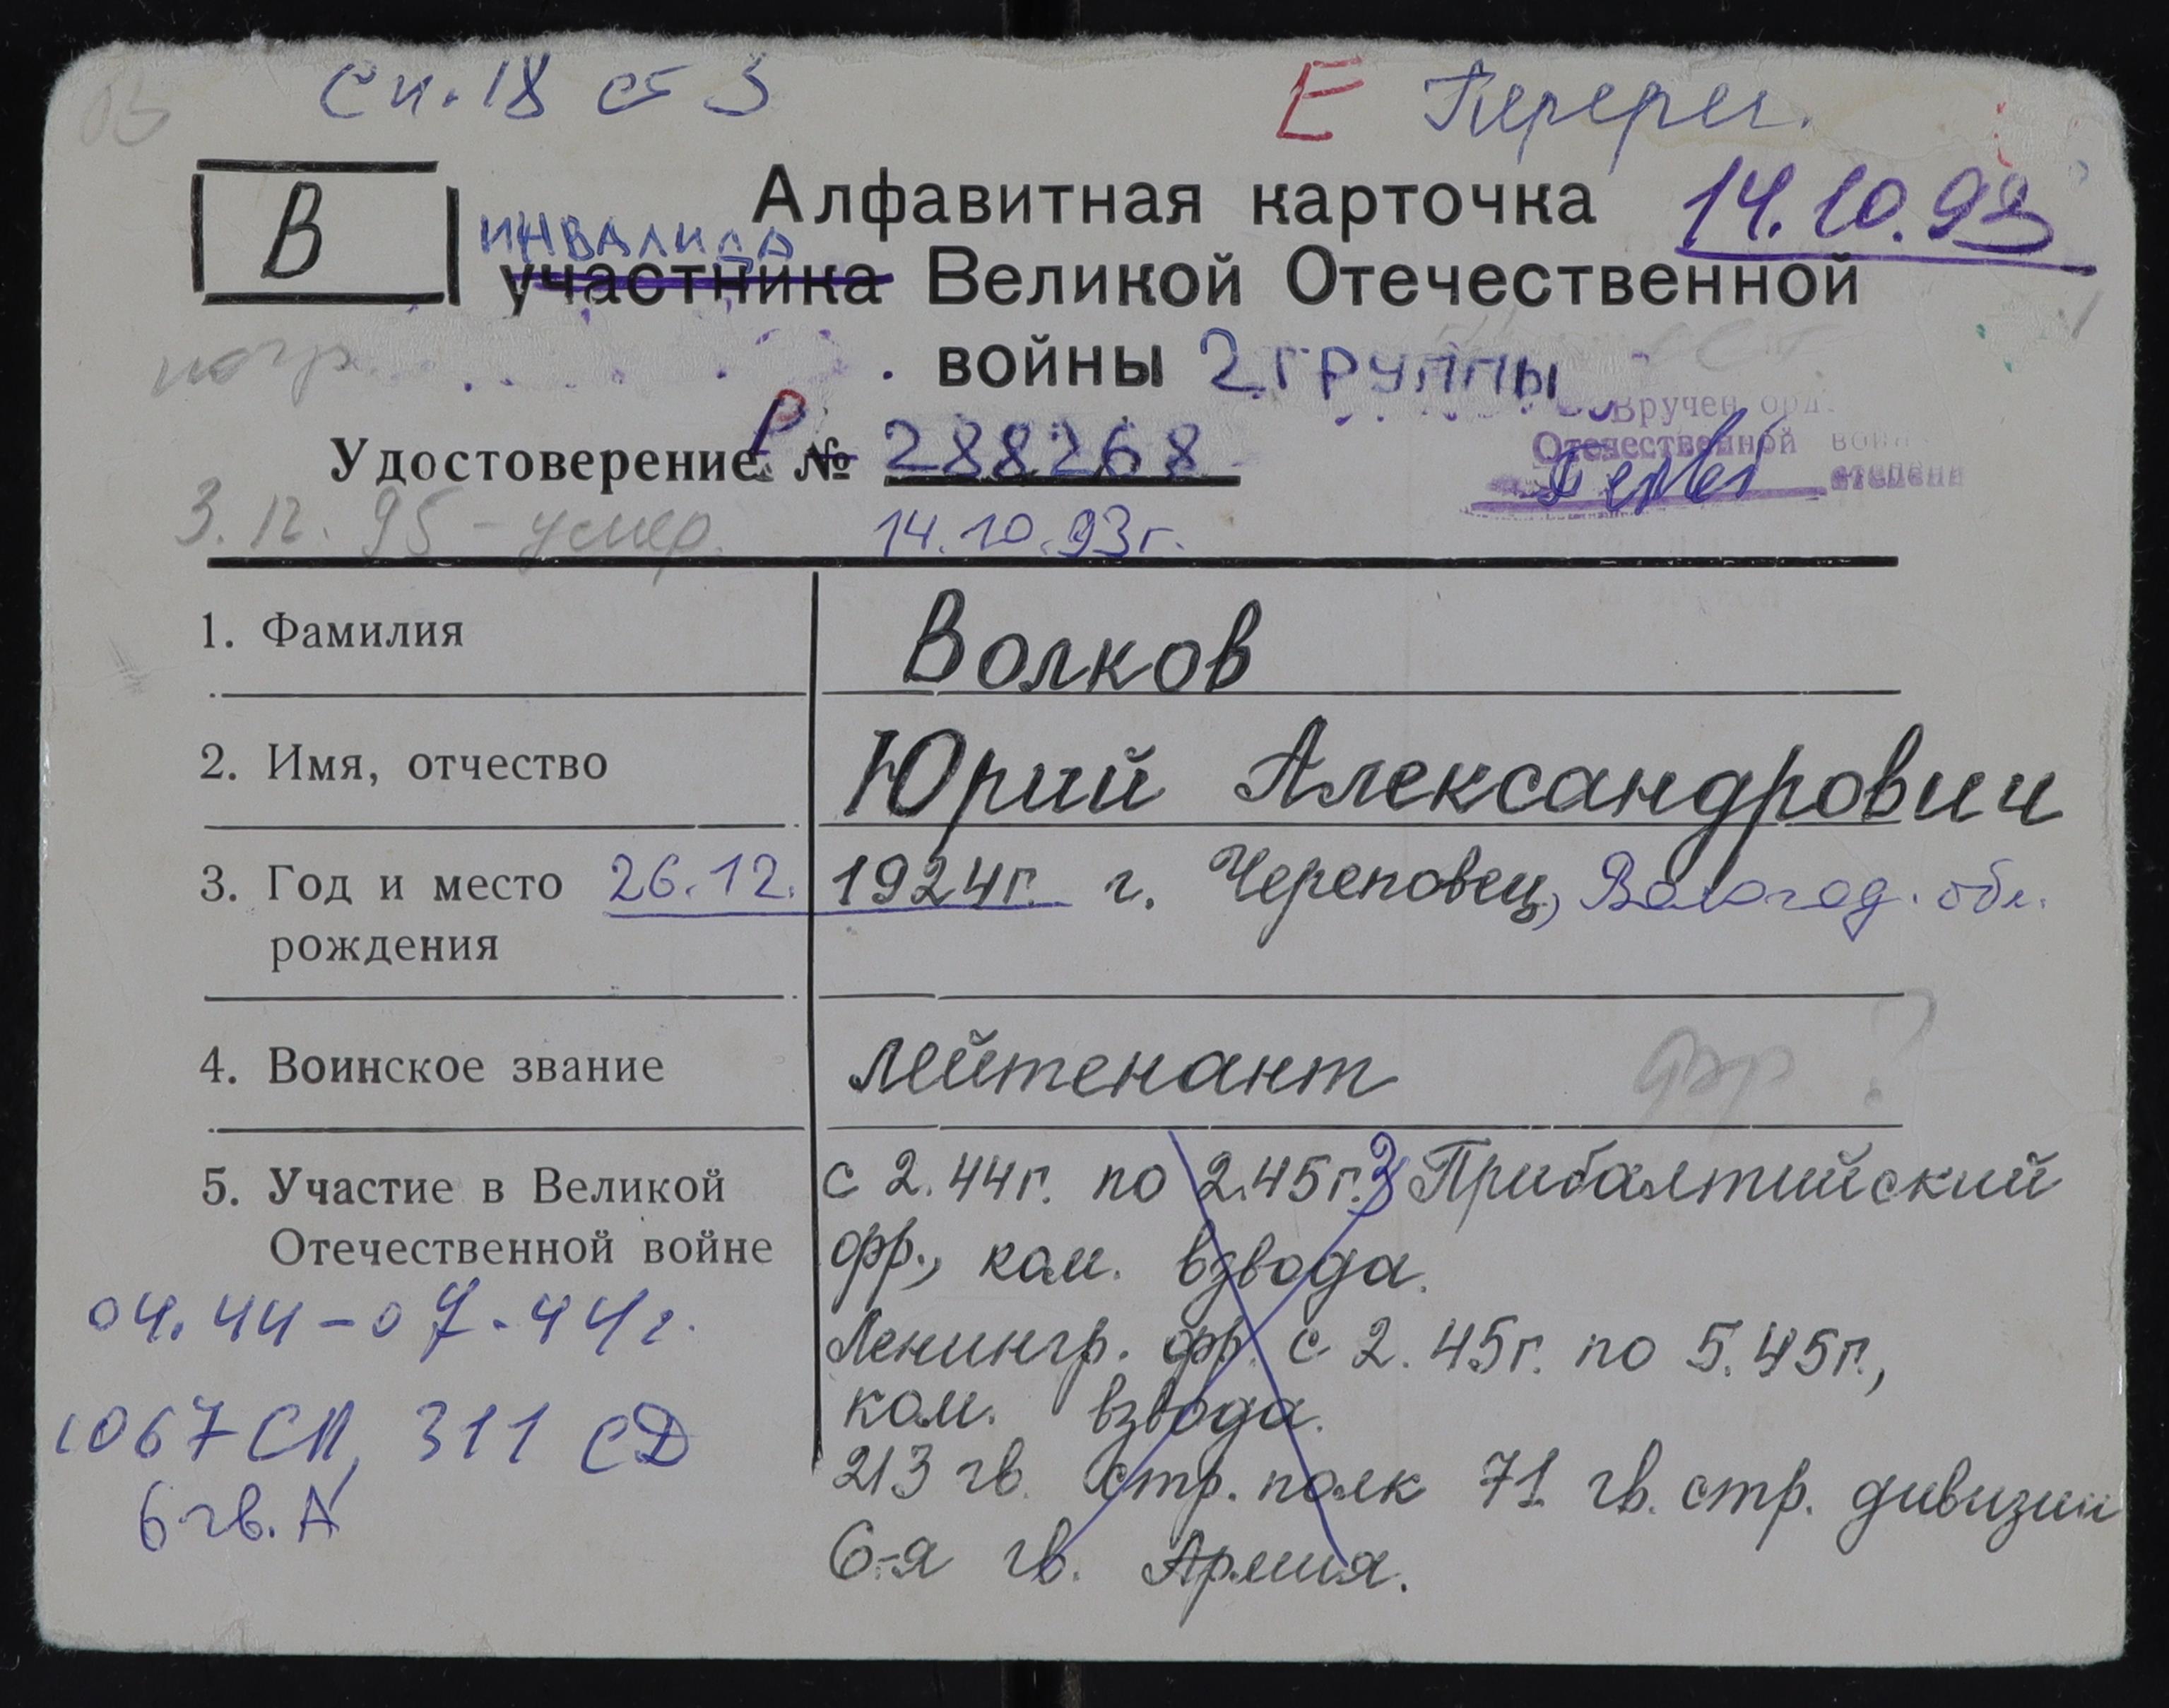 сп. 18 ст 3
Е Перерег.
14.10.93
В
Алфавитная карточка
инвалида
участника Великой Отечественной
войны 2 группы
погр.
Вручен орд.
Отечественной вой
степени
Удостоверение Р № 288268
3.12.95 - умер.
14.10.93г.
1. Фамилия Волков
2. Имя, отчество Юрий Александрович
3. Год и место рождения 26.12. 1924г. г. Череповец, Вологод. обл.
4. Воинское звание лейтенант
5. Участие в Великой Отечественной войне
с 2.44г. по 2.45г. 3 Прибалтийский
фр., ком. взвода.
Ленингр. фр. с 2.45г. по 5.45г.,
ком. взвода.
213 гв. стр. полк 71 гв. стр. дивизии
6-я гв. Армия.
04.44-07.44г.
1067 СП, 311 СД
6 гв. А